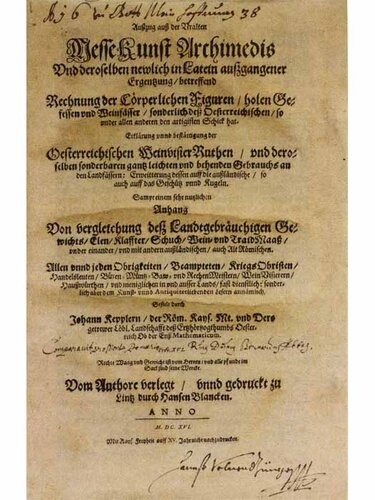 Außzug auß der Vralten
Messe Kunst Archimedis
Vnd deroselben newlich in Latein außgangener
Ergentzung / betreffend
Rechnung der Cörperlichen Figuren / holen Ge-
fessen vnd Weinfässer / sonderlich deß Oesterreichischen / so
vnder allen anderen den artigisten Schick hat.
Erklärung vnnd bestättigung der
Oesterreichischen Weinvisier Ruthen / vnd dero-
selben sonderbaren gantz leichten vnd behenden Gebrauchs an
den Landfässern: Erweitterung dessen auff die außländische / so
auch auff das Geschütz vnnd Kugeln.
Sampt einem sehr nutzlichen
Anhang
Von vergleichung deß Landtgebräuchigen Ge-
wichts / Elen / Klaffter / Schuch / Wein vnd Traid Maaß /
vnder einander / vnd mit andern außländischen / auch Alt Römischen.
Allen vnnd jeden Obrigkeiten / Beampteten / Kriegs Obristen /
Handelsleuten / Müntz- Baw- vnd RechenMeistern / Wein Visierern /
Haußwürthen / vnd menniglichen in vnd ausser Landts / fast dienstlich /
sonderlich aber den Kunst- vnnd Antiquitet liebenden Lesern annämlich.
Gestelt durch
Johann Kepplern / der Röm. Kays. Mt. Vnd Dero
getrewer Löbl. Landschafft deß Ertzhörzogthumbs Oester-
reich Ob der Enß Mathematicum.
Rechte Waag vnd Gewicht ist vom Herren: vnd alle pfundt im
Sack sind seine Wercke.
Vom Authore verlegt / vnnd gedruckt zu
Lintz durch Hansen Blancken.
ANNO
M. DC. XVI.
Mit Kays. Freyheit auff XV. Jahr nicht nachzudrucken.